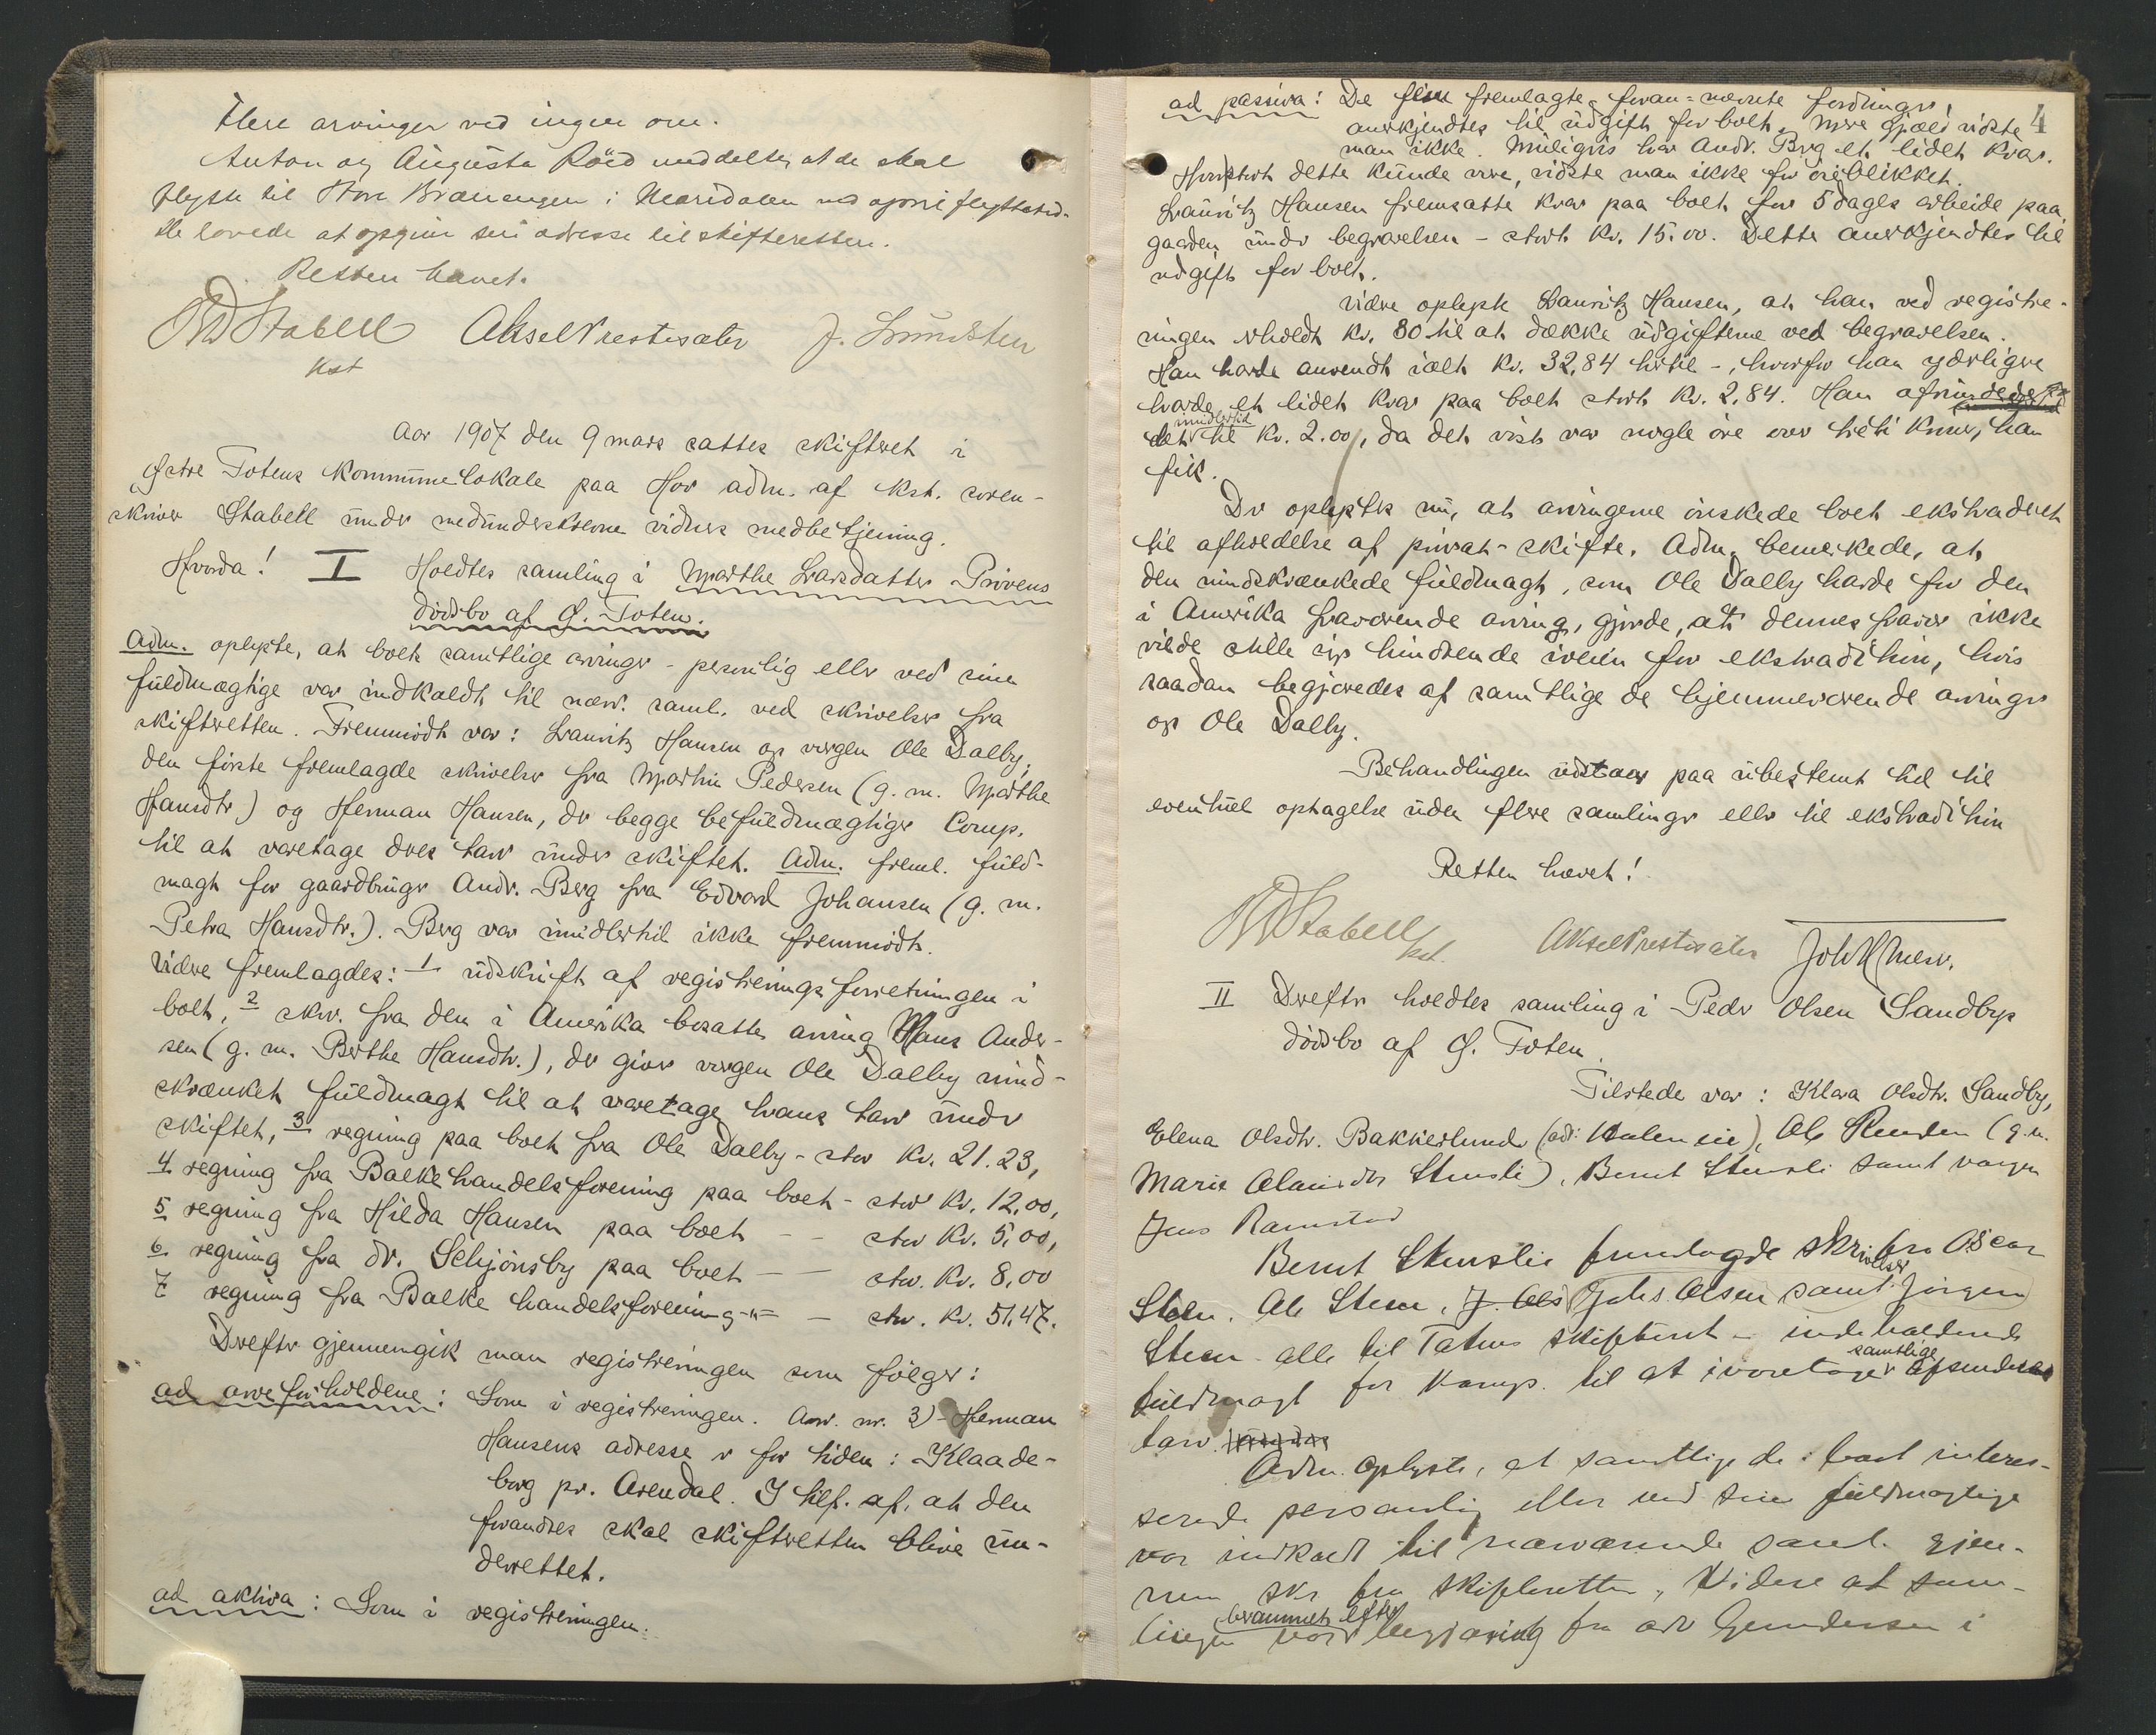 Flere arvinger ved ingen om.
Anton og Augusta Röid meddelte, at de skal
flytte til Store Brænengen i Maridalen ved april flyttetid.
De lovede at opgive sin adresse til skifteretten.
Retten hævet.
Stabell Aksel Prestesæter J. Lundsten
kst
Aar 1907 den 9 mars sattes skifteret i
Östre Totens kommunelokale paa Hov adm. af kst. soren-
skriver Stabell under medunderskrevne vidners medbetjening.
Hvorda! I Holdtes samling i Marthe Larsdatter Prövens
dödsbo af Ö. Toten.
Adm. oplyste, at boets samtlige arvinger - personlig eller ved sine
fuldmægtige var indkaldt til nærv. saml. ved skrivelser fra
skifteretten. Fremmödt var: Lauritz Hansen og vergen Ole Dalby;
den förste fremlagde skrivelser fra Martin Pedersen (g. m. Marthe
Hansdtr) og Herman Hansen, der begge befuldmægtiger Comp.
til at varetage deres tarv under skiftet. Adm. freml. fuld-
magt for gaardbruger Andr. Berg fra Edvard Johansen (g. m.
Petra Hansdtr.). Berg var imidlertid ikke fremmödt.
Videre fremlagdes: 1 udskrift af registreringsforretningen i
boet, 2 skr. fra den i Amerika bosatte arving Hans Ander-
sen (g. m. Berthe Hansdtr.), der giver vergen Ole Dalby uind-
skrænket fuldmagt til at varetage hans tarv under
skiftet, 3 regning paa boet fra Ole Dalby - stor kr. 21.23,
4 regning fra Balke handelsforening paa boet - stor kr. 12,00,
5 regning fra Hilda Hansen paa boet - - stor kr. 5,00,
6 regning fra dr. Schjönsby paa boet - - stor. kr. 8,00
7 regning fra Balke handelsforening -"- - stor. kr. 51.47.
Derefter gjennemgik man registreringen som fölger:
ad arveforholdene: Som i registreringen. Arv. nr. 3) - Herman
Hansens adresse er for tiden: Klaade-
borg pr. Arendal. I tilf. af, at den
forandres skal skifteretten blive un-
derrettet.
ad aktiva: Som i registreringen.
4
ad passiva: De fem fremlagte foran-nævnte fordringer,
anerkjendtes til udgift for boet. Mere gjæld vidste
man ikke. Muligvis har Andr. Berg et lidet krav.
Hvor stort dette kunde være, vidste man ikke for öieblikket.
Lauritz Hansen fremsatte krav paa boet for 5 dages arbeide paa
gaarden under begravelsen - stort kr. 15.00. Dette anerkjendtes til
udgift for boet.
Videre oplyste Lauritz Hansen, at han ved registre-
ringen erholdt kr. 30 til at dække udgifterne ved begravelsen.
Han havde anvendt ialt kr. 32,84 hertil -, hvorfor han yderligere
havde et lidet krav paa boet stort kr. 2,84. Han afrundede
det imidlertid til kr. 2.00, da det vist var nogle öre over tredi kroner, han
fik.
Der oplystes nu, at arvingerne önskede boet ekstraderet
til afholdelse af privat-skifte. Adm. bemerkede, at
den uindskrænkede fuldmagt, som Ole Dalby havde for den
i Amerika fraværende arving, gjorde, at dennes fravær ikke
vilde stille sig hindrende iveien for ekstradition, hvis
saadan begjæredes af samtlige de hjemmeværende arvinger
og Ole Dalby.
Behandlingen udstaar paa ubestemt tid til
eventuel optagelse uden flere samlinger eller til ekstradition
Retten hævet!
Stabell kst. Aksel Prestesæter
II Derefter holdtes samling i Peder Olsen Sandbys
dödsbo af Ö. Toten.
Tilstede var: Klara Olsdtr. Sandby,
Elena Olsdtr. Bakkerlund, Ole (g. m.
Marie Stensli), Bernt Stensli samt vergen
Jens Ramstad
Bernt Stenslie fremlagde skrivelser fra Oscar
Steen, Ole Steen, J. Ols Johs. Olsen samt Jörgen
Steen - alle til Totens skifteret - indeholdende
fuldmagt for Komp. til at ivaretage samtlige afsenderes
tarv.
Adm. oplyste, at samtlige de i boet interes-
serede personlig eller ved sine fuldmægtige
var indkaldt til nærværende saml. gjen-
nem skr fra skifteretten, Videre at sam-
lingen var berammet efter begjæring fra adv Gundersen i